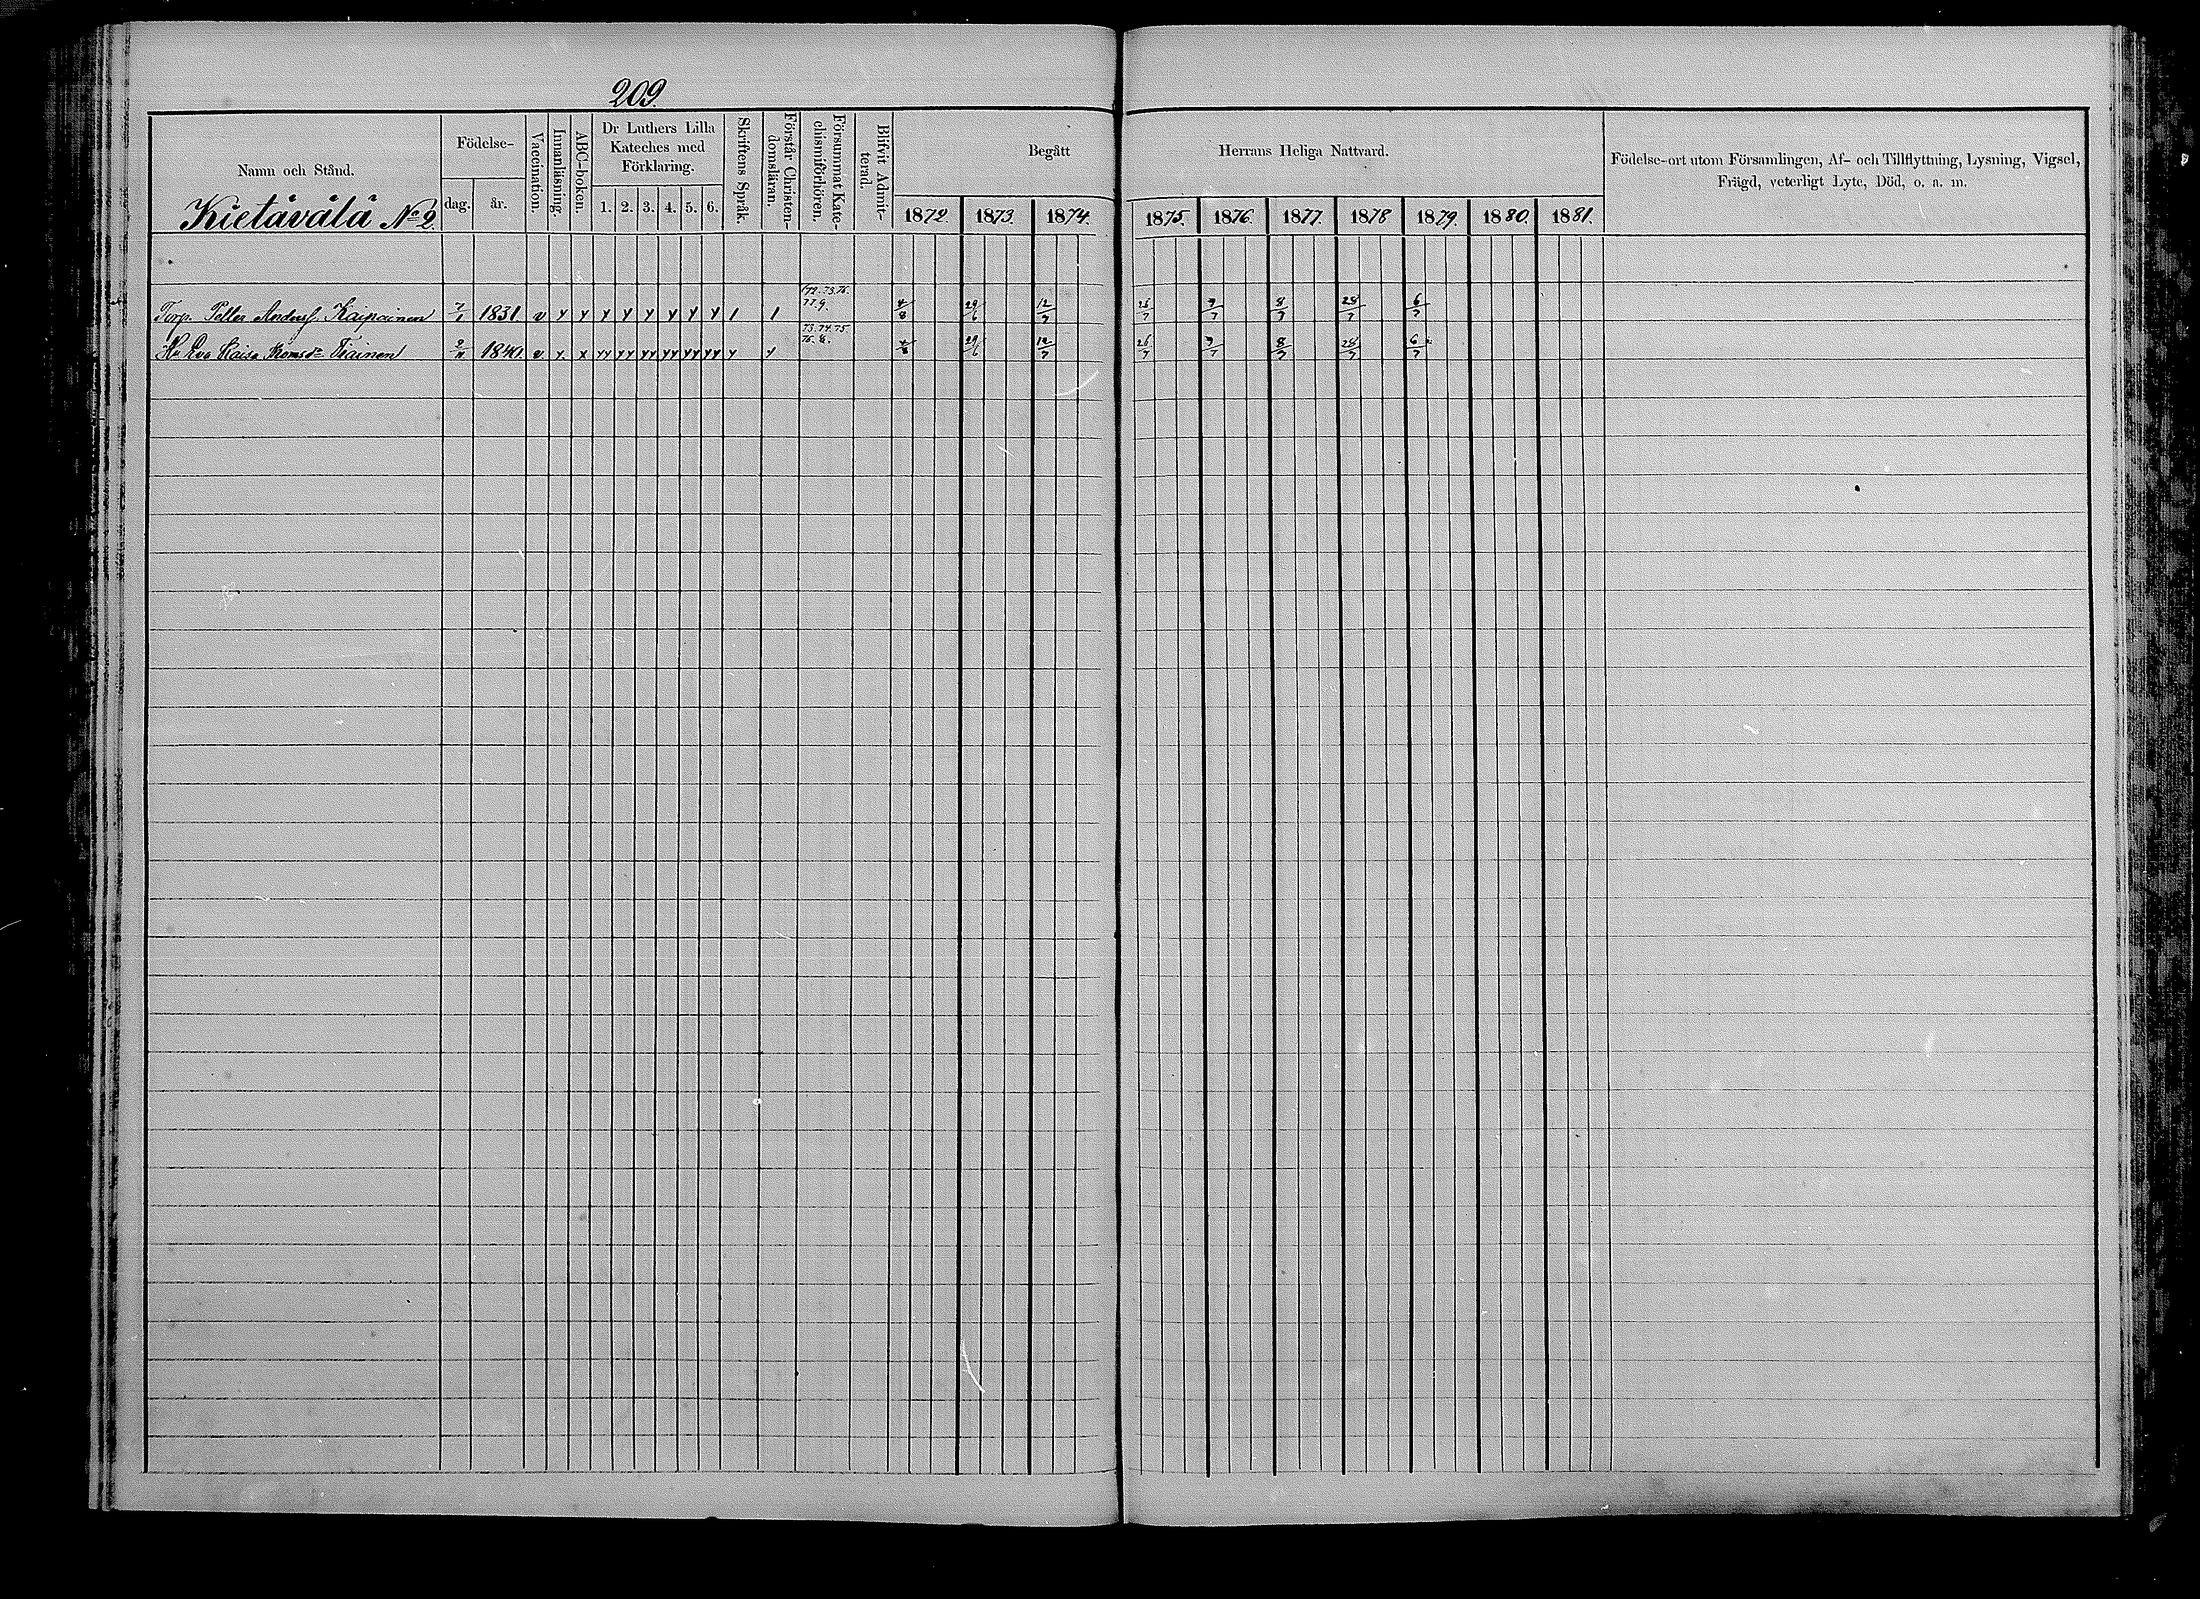 209.
Namn och Stånd.
Födelse-
dag. år.
Vaccination.
Innanläsning.
ABC-boken.
Dr Luthers Lilla
Kateches med
Förklaring.
1. 2. 3. 4. 5. 6.
Skriftens Språk.
Förstår Christen-
domsläran.
Försummat Kate-
chismiförhören.
Blifvit Admit-
terad.
Begått Herrans Heliga Nattvard.
1872. 1873. 1874. 1875. 1876. 1877. 1878 1879. 1880 1881.
Födelse-ort utom Församlingen, Af- och Tillflyttning, Lysning, Vigsel,
Frägd, veterligt Lyte, Död, o. a. m.
Kietävälä No 2.
Torp. Petter Andersf. Kaipainen 7/1 1831 v y y y y y y y y 1 1 72. 73. 76. 77. 9. 4/8 29/6 12/7 26/7 9/7 8/7 28/7 6/7
Hu Eva Caisa Tiainen 2/11 1840 v y x yy yy yy yy yy yy y y 73. 74. 75. 76. 4/8 29/6 12/7 26/7 9/7 8/7 28/7 6/7